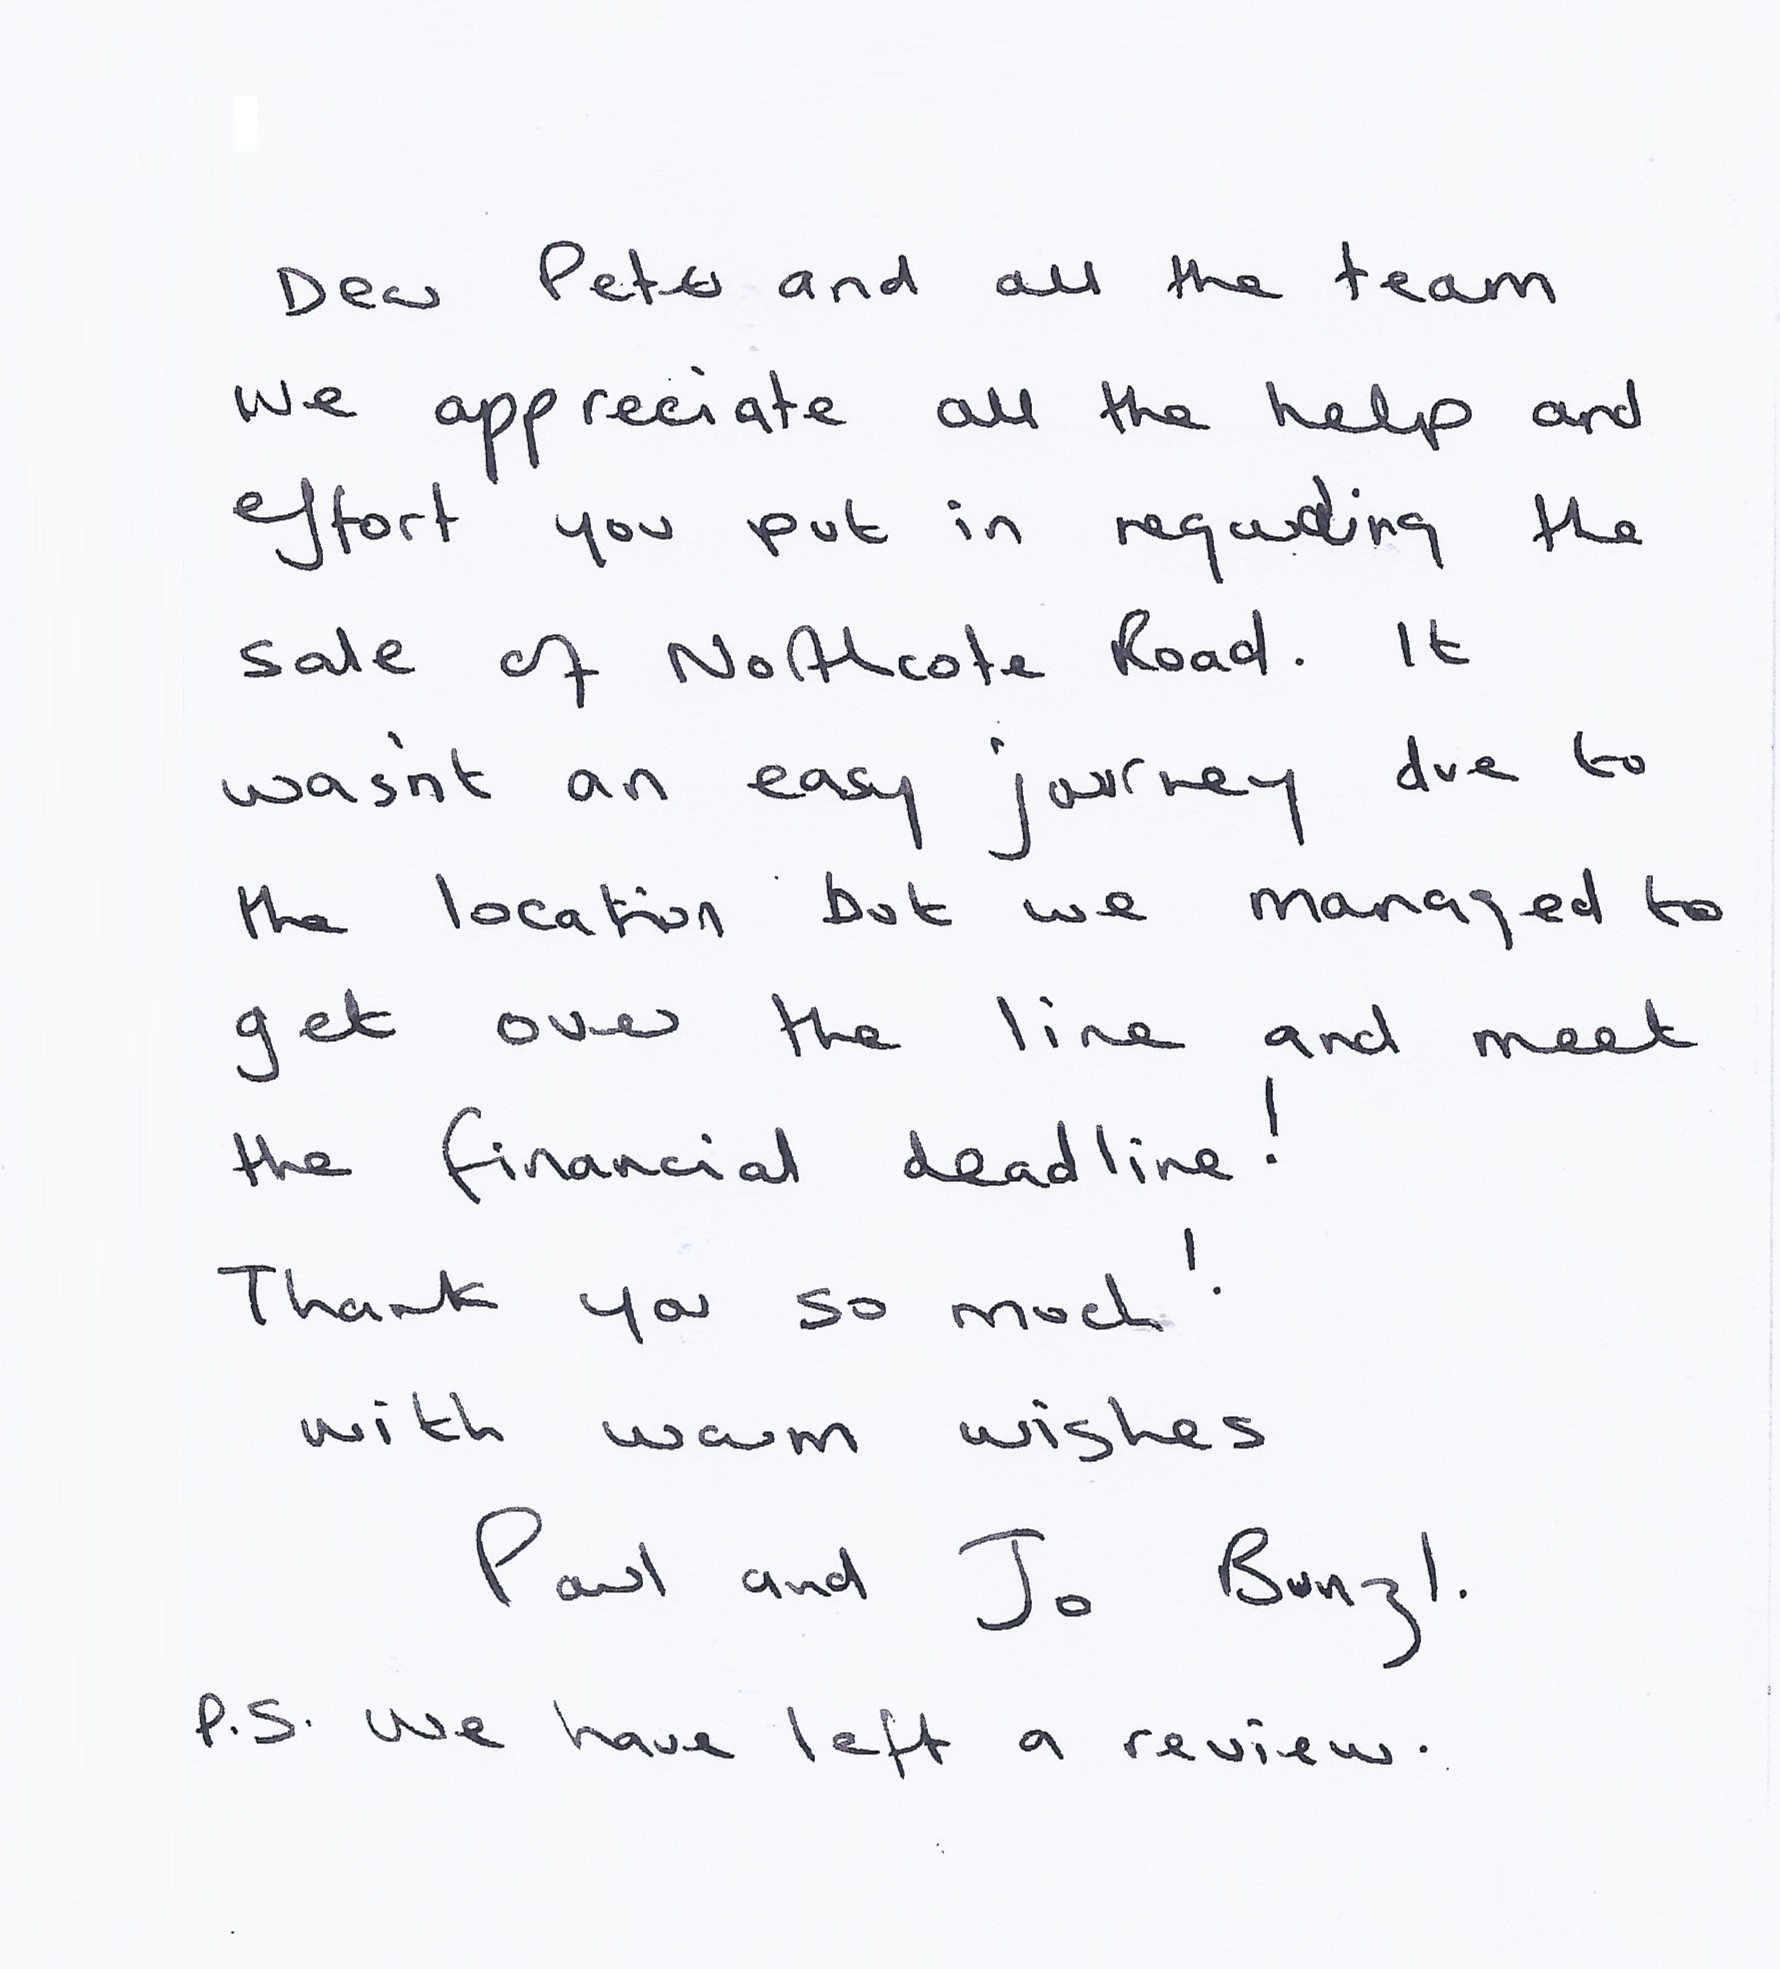 Dear Peter and all the team
we appreciate all the help and
effort you put in regarding the
sale of Northcote Road. It
wasn't an easy journey due to
the location but we managed to
get over the line and meet
the financial deadline!
Thank you so much!
with warm wishes
Paul and Jo Bunzl.
P.S. We have left a review.